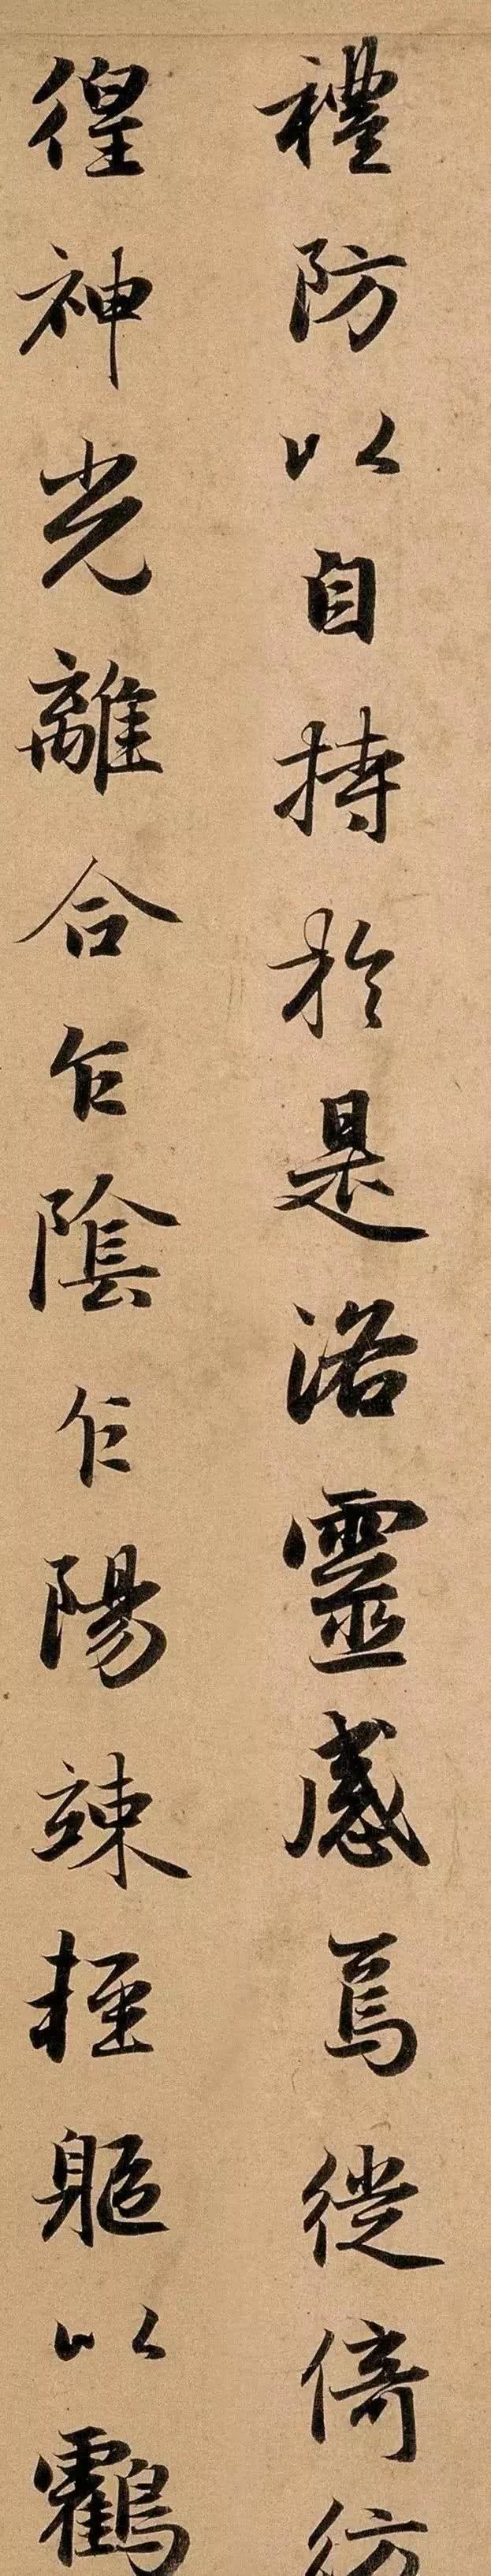 禮防以自持於是洛靈感焉徙倚彷
徨神光離合乍陰乍陽竦輕軀以鶴